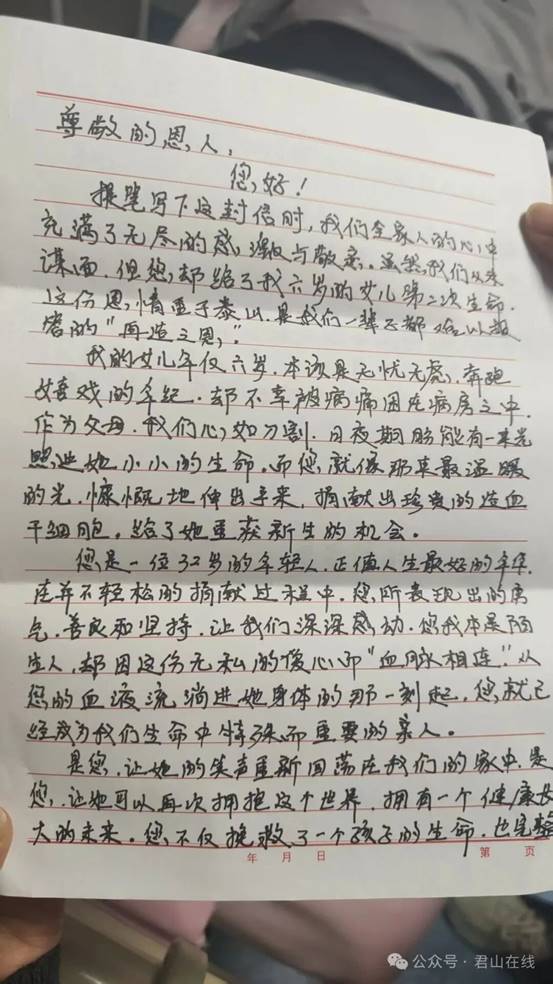 尊敬的恩人,
您好!
提笔写下这封信时,我们全家人的心中
充满了无尽的感激与敬意。虽然我们从未
谋面.但您却给了我六岁的女儿第二次生命.
这份恩情重于泰山.是我们一辈子都难以报
答的"再造之恩"
我的女儿年仅六岁.本该是无忧无虑.奔跑
嬉戏的年纪.却不幸被病痛困在病房之中.
作为父母.我们心如刀割.日夜期盼能有一束光
照进她小小的生命。而您就像那束最温暖
的光.慷慨地伸出手来,捐献出珍贵的造血
干细胞。给了她重获新生的机会。
您是一位32岁的年轻人.正值人生最好的年华.
在并不轻松的捐献过程中.您所表现出的勇
气.善良和坚持.让我们深深感动.您我本是陌
生人,却因这份无私的爱心而"血脉相连".从
您的血液流淌进她身体的那一刻起,您就已
经成为我们生命中特殊而重要的亲人。
是您.让她的笑声重新回荡在我们的家中.是
您.让她可以再次拥抱这个世界.拥有一个健康长
大的未来。您不仅挽救了一个孩子的生命.也完整
年 月 日 第 页
公众号·君山在线